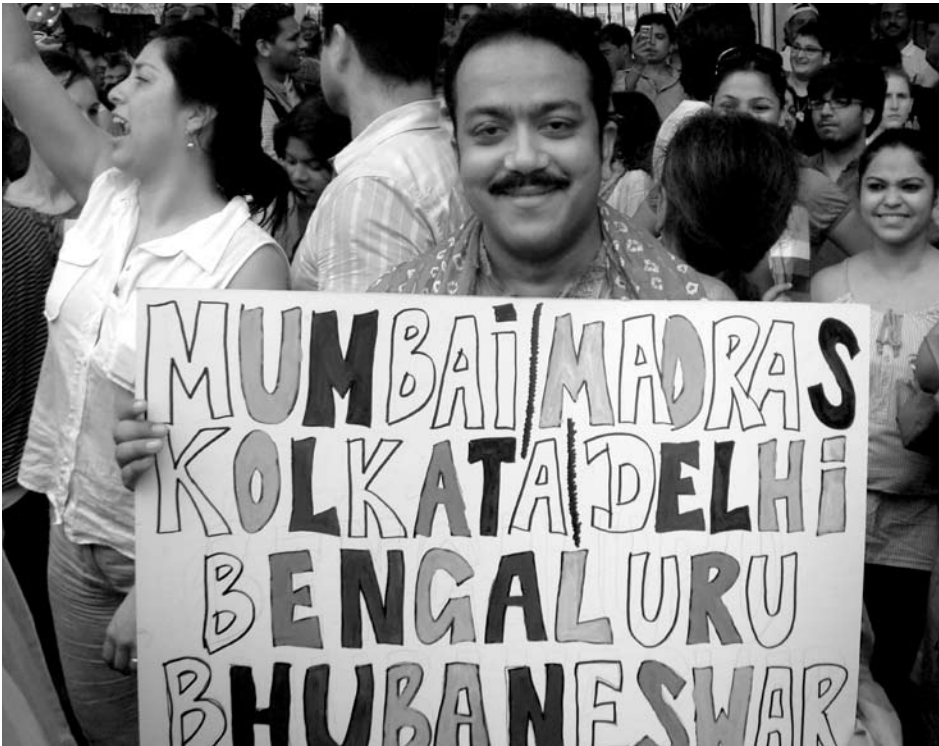 MUMBAi/MADRAS
KOLKATA/DELHi
BENGALURU
BHUBANESWAR